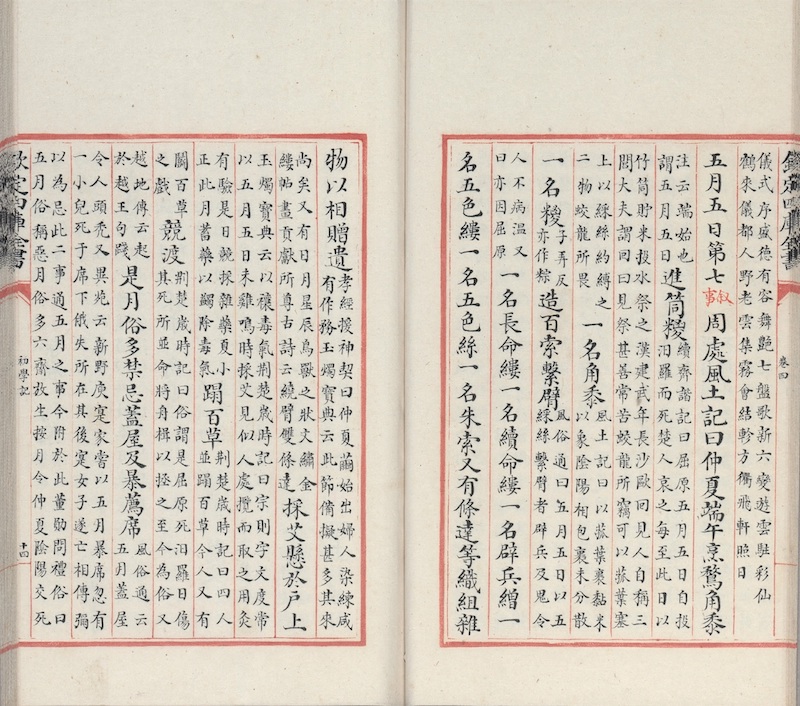 欽定四庫全書
卷四
儀式序盛德有容舞艷七盤歌新六變遊雲駐彩仙
鶴來儀都人野老雲集霧會結軫方衢飛軒照日
五月五日第七 叙事 周處風土記曰仲夏端午烹鶩角黍
注云端始也謂五月五日 進筒糉 續齊諧記曰屈原五月五日自投汨羅而死楚人哀之每至此日以
竹筒貯米投水祭之漢建武年長沙歐回見人自稱三
閭大夫謂回曰見祭甚善常苦蛟龍所竊可以菰葉塞
上以綵絲約縛之二物蛟龍所畏 一名角黍 風土記曰以菰葉裹黏米以象陰陽相包裹未分散
一名糉 子弄反亦作粽 造百索繫臂 風俗通曰五月五日以五綵絲繫臂者辟兵及鬼令
人不病溫又曰亦因屈原 一名長命縷一名續命縷一名辟兵繒一
名五色縷一名五色絲一名朱索又有條達等織組雜
物以相贈遺 孝經援神契曰仲夏繭始出婦人染練咸有作務玉燭寶典云此節備擬甚多其來
尚矣又有日月星辰鳥獸之狀文繡金縷帖畫貢獻所尊古詩云繞臂雙條達 採艾懸於户上
玉燭寶典云以禳毒氣荆楚歲時記曰宗則字文度常
以五月五日未雞鳴時採艾見似人處攬而取之用灸
有驗是日競採雜藥夏小正此月蓄藥以蠲除毒氣 蹋百草 荆楚歲時記曰四人並蹋百草今人又有
鬭百草之戯 競渡 荆楚歲時記曰俗謂是屈原死汨羅日傷其死所並命將舟楫以拯之至今為俗又
越地傳云起於越王句踐 是月俗多禁忌蓋屋及暴薦席 風俗通云五月蓋屋
令人頭秃又異苑云新野庾寔家嘗以五月暴席忽有
一小兒死于席下俄失所在其後寔女子遂亡相傳彌
以為忌此二事通五月之事今附於此董勛問禮俗曰
五月俗稱惡月俗多六齋放生按月令仲夏陰陽交死
欽定四庫全書
初學記
十四